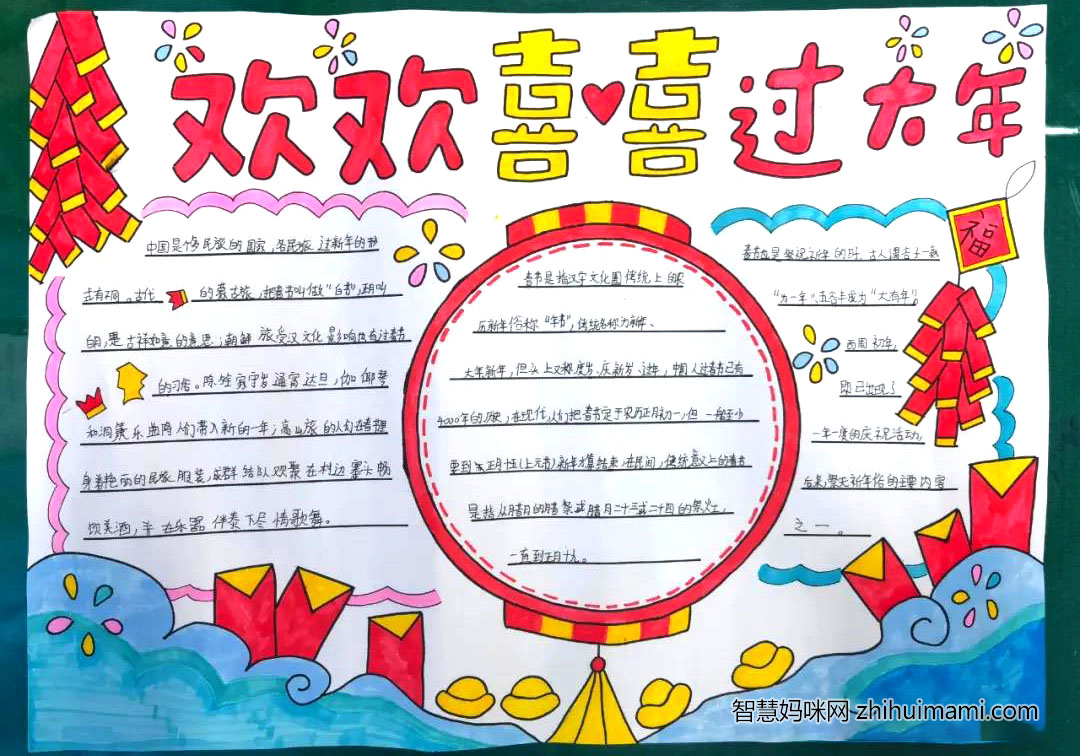 欢欢喜喜过大年
福
中国是个多民族的国家,各民族过新年的形
式有不同。古代的蒙古族,把春节叫做“白节”,正月叫
白月,是吉祥如意的意思;朝鲜族受汉文化影响也有过春节
的习俗。除夕家家守岁通宵达旦,伽倻琴
和洞箫乐曲将人们带入新的一年;高山族的人们在春节
身着艳丽的民族服装,成群结队欢聚在村边寨头畅
饮美酒,并在乐器伴奏下尽情歌舞。
春节是指汉字文化圈传统上的农
历新年俗称“年节”,传统名称为新年、
大年新年,但口头上又称度岁、庆新岁、过年,中国人过春节已有
4000年的历史,在现代,人们把春节定于农历正月初一,但一般至少
要到正月十五(上元节)新年才算结束,在民间,传统意义上的春节
是指从腊月的腊祭或腊月二十三或二十四的祭灶,
一直到正月十九。
春节也是祭祝祈年的日子,古人谓谷子一熟
“为一年”,五谷丰收为“大有年”。
西周初年,
即已出现了
一年一度的庆祝活动,
后来,祭天祈年俗的主要内容
之一。
智慧妈咪网-zhihuimami.com